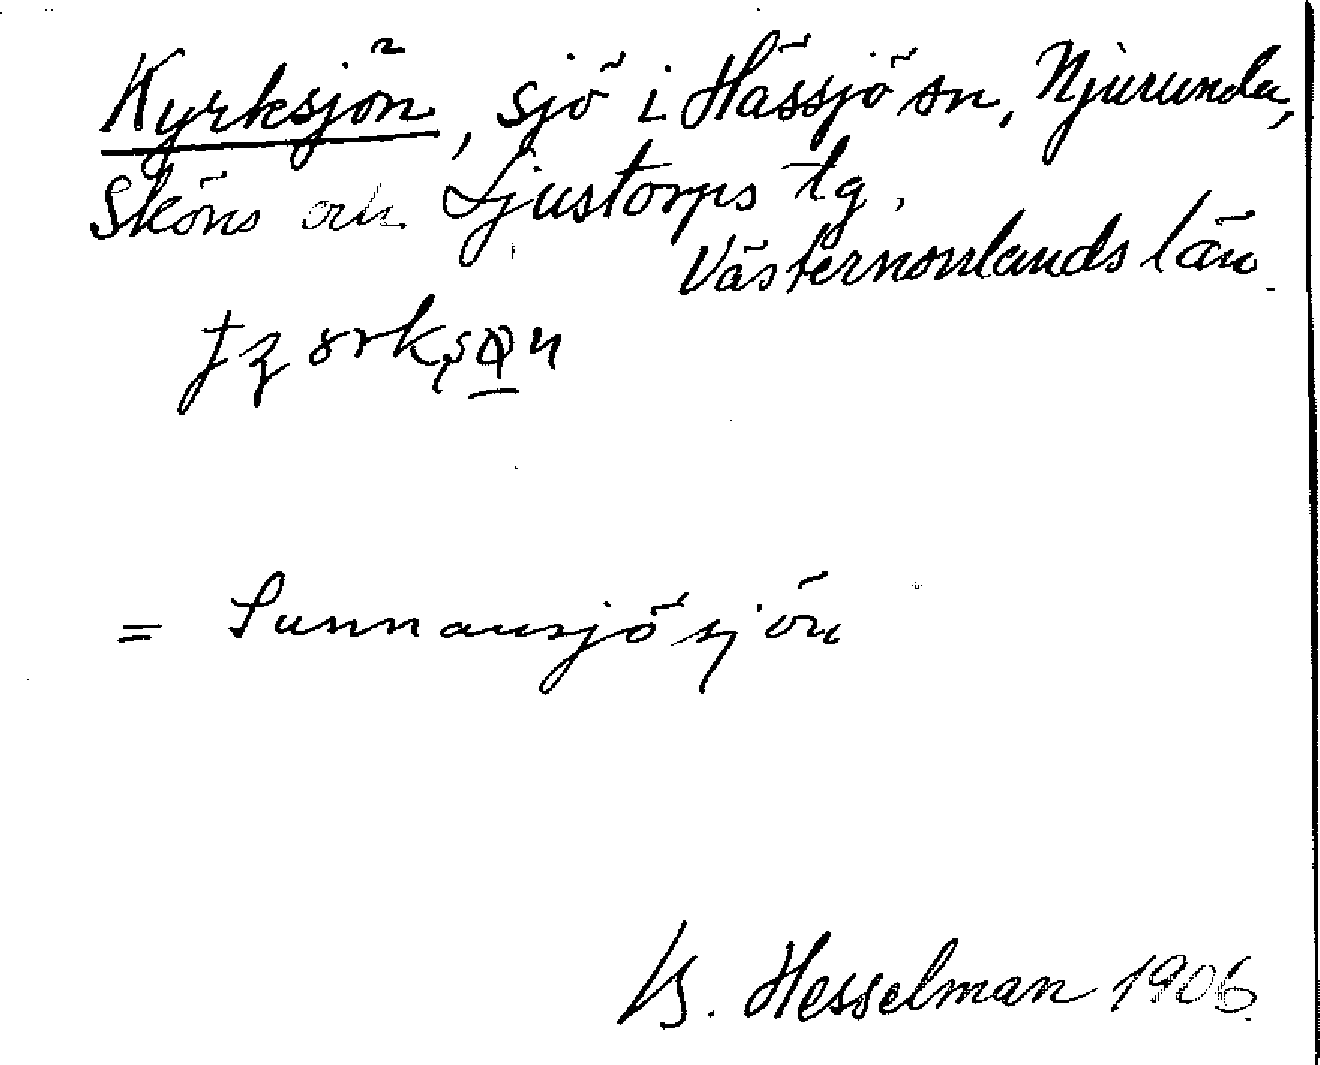 Kyrksjön, sjö i Hässjö sn, Njurunda,
Sköns och Ljustorps tg.
Västernorrlands län
= Sunnansjösjön
B. Hesselman 1906